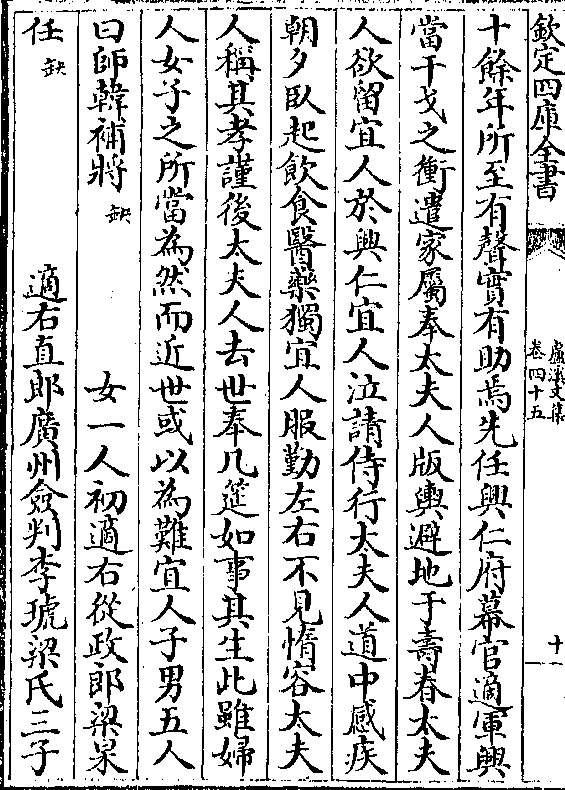 欽定四庫全書
盧溪文集
卷四十五
十一
十餘年所至有聲實有助焉先任興仁府幕官適軍興
當干戈之衝遣家屬奉太夫人版輿避地于壽春太夫
人欲留宜人於興仁宜人泣請侍行太夫人道中感疾
朝夕臥起飲食醫藥獨宜人服勤左右不見惰容太夫
人稱其孝謹後太夫人去世奉几筵如事其生此雖婦
人女子之所當為然而近世或以為難宜人子男五人
曰師韓補將缺女一人初適右從政郎梁杲
任缺適右直郎廣州僉判李琥梁氏三子